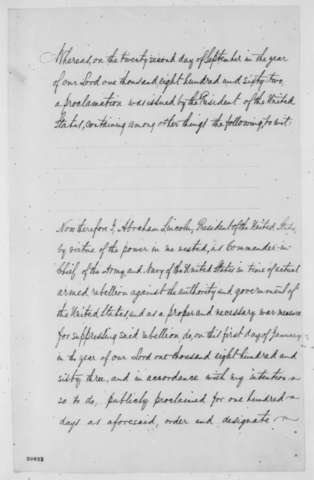 Whereas, on the twenty second day of September in the year
of our Lord one thousand eight hundred and sixty two,
a proclamation was issued by the President of the United
States, containing among other things the following, to wit:
Now therefore I, Abraham Lincoln, President of the United States,
by virtue of the power in me vested, as Commander-in
Chief of the Army and Navy of the United States in time of actual
armed rebellion against the authority and government of
the United States and as a proper and necessary war measure
for suppressing said rebellion do, on this first day of January
in the year of our Lord one thousand eight hundred and
sixty three, and in accordance with my intention
so to do, publicly proclaimed for one hundred
days as aforesaid, order and designate